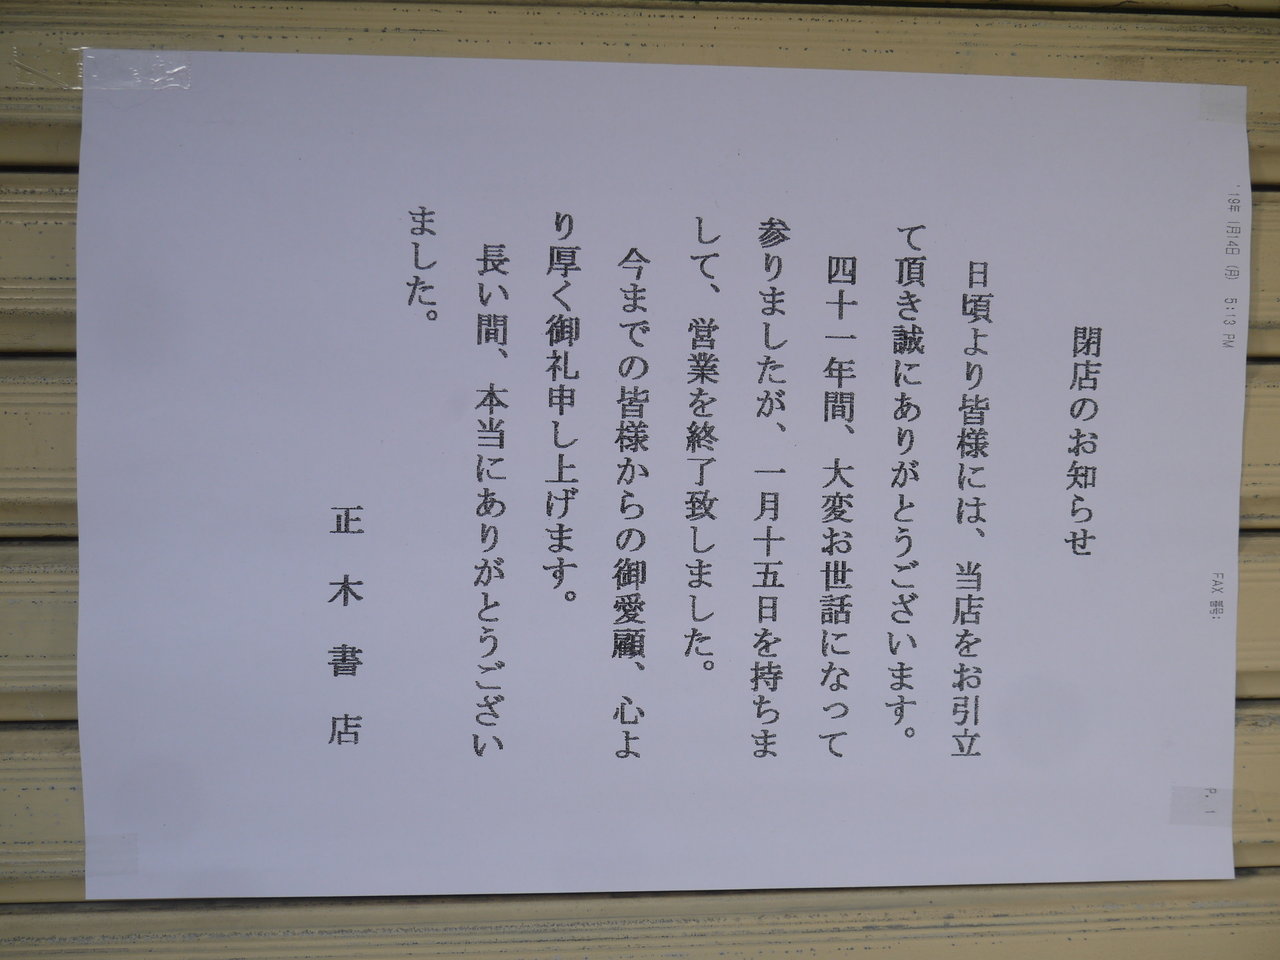 閉店のお知らせ
日頃より皆様には、当店をお引立
て頂き誠にありがとうございます。
四十一年間、大変お世話になって
参りましたが、一月十五日を持ちま
して、営業を終了致しました。
今までの皆様からの御愛顧、心よ
り厚く御礼申し上げます。
長い間、本当にありがとうござい
ました。
正木書店
'19年 1月14日 (月) 5:13 PM
FAX 番号:
P. 1